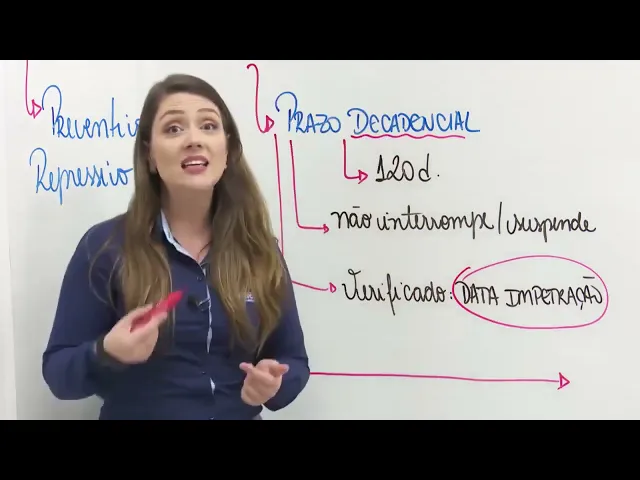 Preventiv
Repressivo
PRAZO DECADENCIAL
120d.
não interrompe/suspende
Verificado: DATA IMPETRAÇÃO